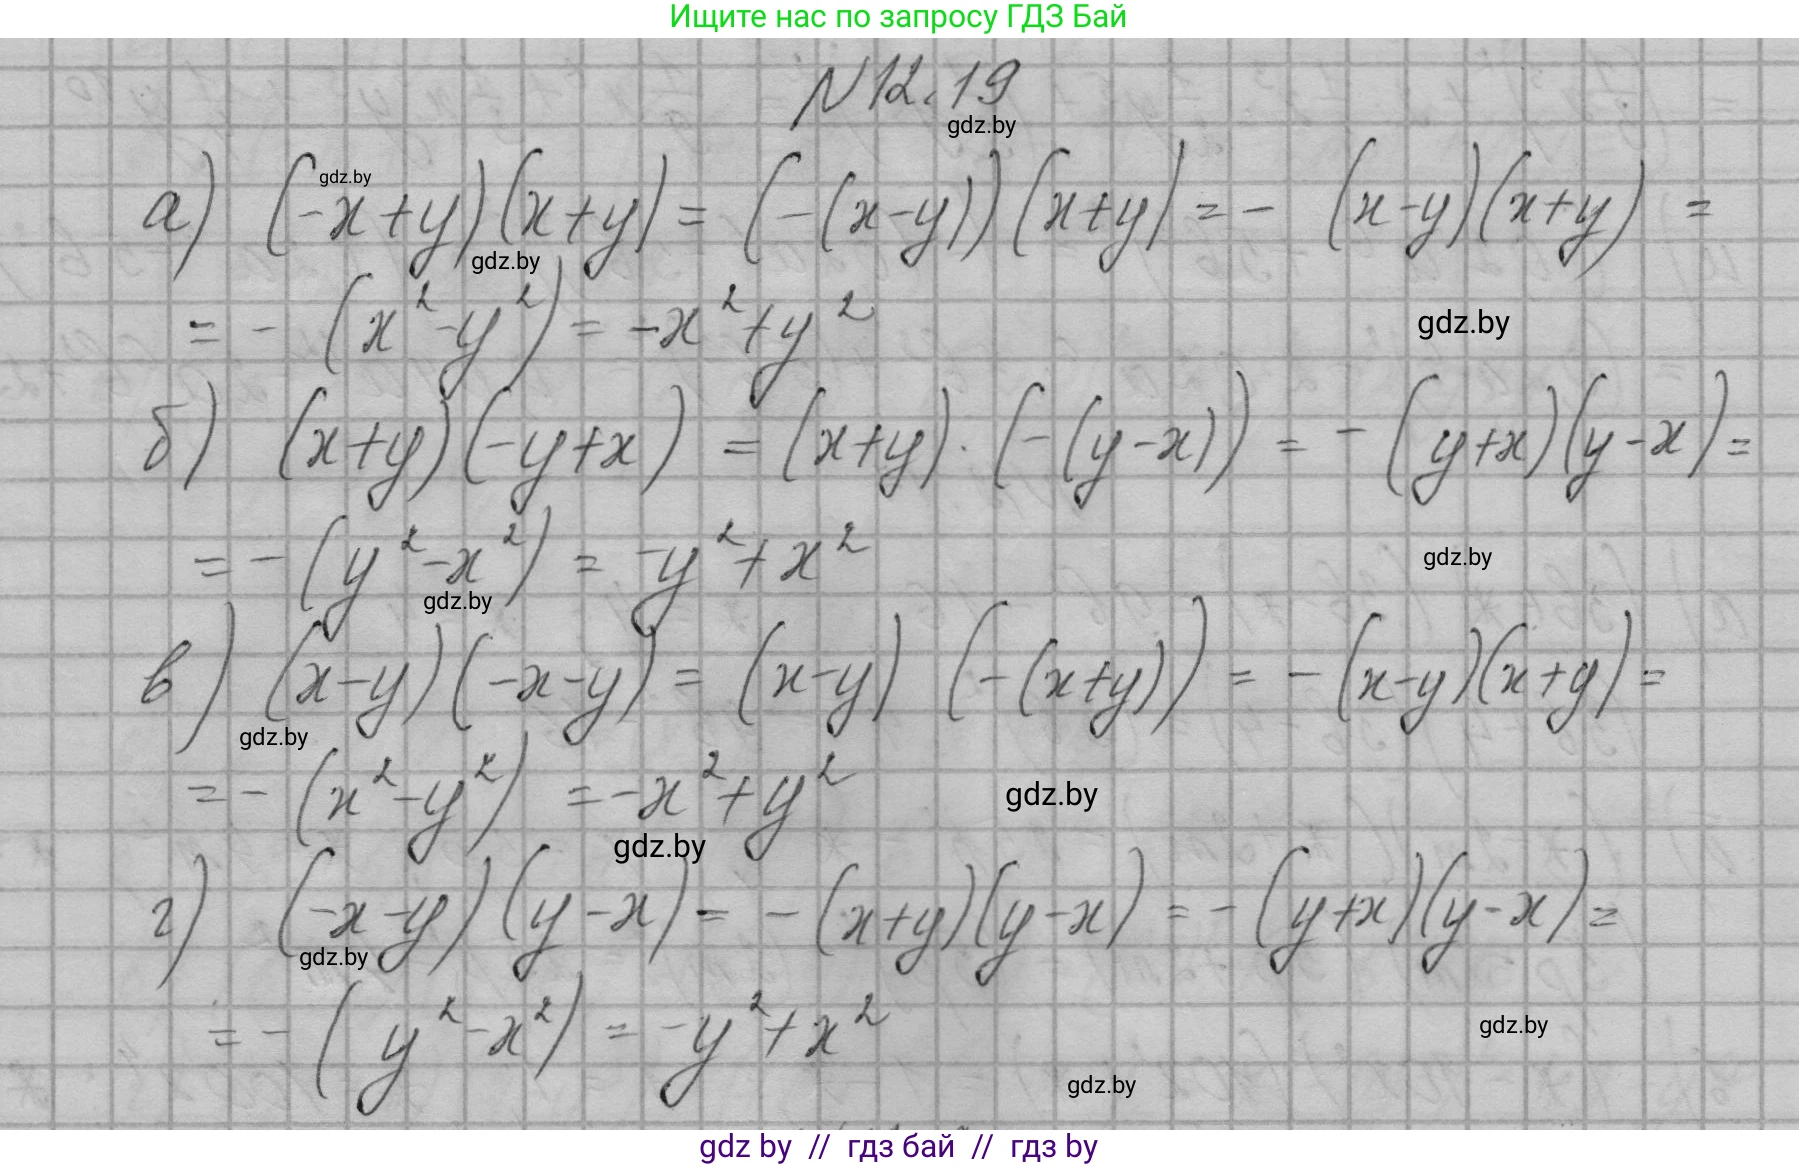 Ищите нас по запросу ГДЗ Бай
№12.19
gdz.by
gdz.by
а) (-x+y)(x+y) = (-(x-y))(x+y) = - (x-y)(x+y) =
gdz.by
= - (x²-y²) = -x²+y²
gdz.by
б) (x+y)(-y+x) = (x+y)·(-(y-x)) = - (y+x)(y-x) =
= - (y²-x²) = -y²+x²
gdz.by
gdz.by
в) (x-y)(-x-y) = (x-y) (-(x+y)) = - (x-y)(x+y) =
gdz.by
= - (x²-y²) = -x²+y²
gdz.by
gdz.by
г) (-x-y)(y-x) = - (x+y)(y-x) = - (y+x)(y-x) =
gdz.by
= - (y²-x²) = -y²+x²
gdz.by
gdz.by
gdz by // гдз бай // гдз by